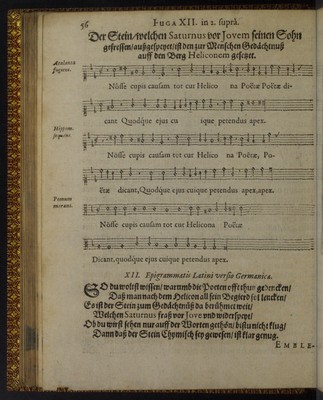 56
FUGA XII. in 2. suprà.
Der Stein/welchen Saturnus vor Jovem seinen Sohn
gefressen/außgespeyet/ist den zur Menschen Gedächtnuß
auff den Berg Heliconem gesetzet.
Atalanta
fugiens.
Nôsse cupis causam tot cur Helico na Poëtæ Poëtæ di-
cant Quodque ejus cu ique petendus apex.
Hippom.
sequens.
Nôsse cupis causam tot cur Helico na Poëtæ, Po-
ëtæ dicant, Quodque ejus cuique petendus apex, apex.
Pomum
morans.
Nôsse cupis causam tot cur Helicona Poëtæ
Dicant, quodque ejus cuique petendus apex.
XII. Epigrammatis Latini versio Germanica.
SO du woltst wissen/ warumb die Poeten offt thun gedencken/
Daß man nach dem Helicon all sein Begierd sol lencken/
Es ist der Stein zum Gedächtnuß da berühmet weit/
Welchen Saturnus fraß vor Jove und widerspeyt/
Ob du wirst sehen nur auff der Worten gethön/ bistu nicht klug/
Dann daß der Stein Chymisch sey gewesen/ ist klar genug.
EMBLE-